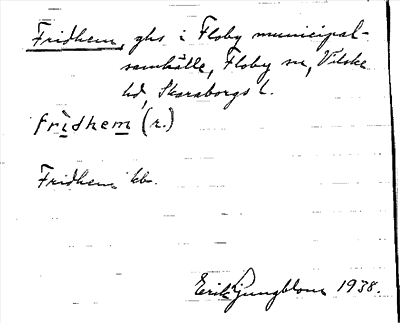 Fridhem, ghs i Floby municipal-
samhälle, Floby sn, Vilske
hd, Skaraborgs l.
frìdhem (r.)
Fridhem kb.
Erik Ljungblom 1938.